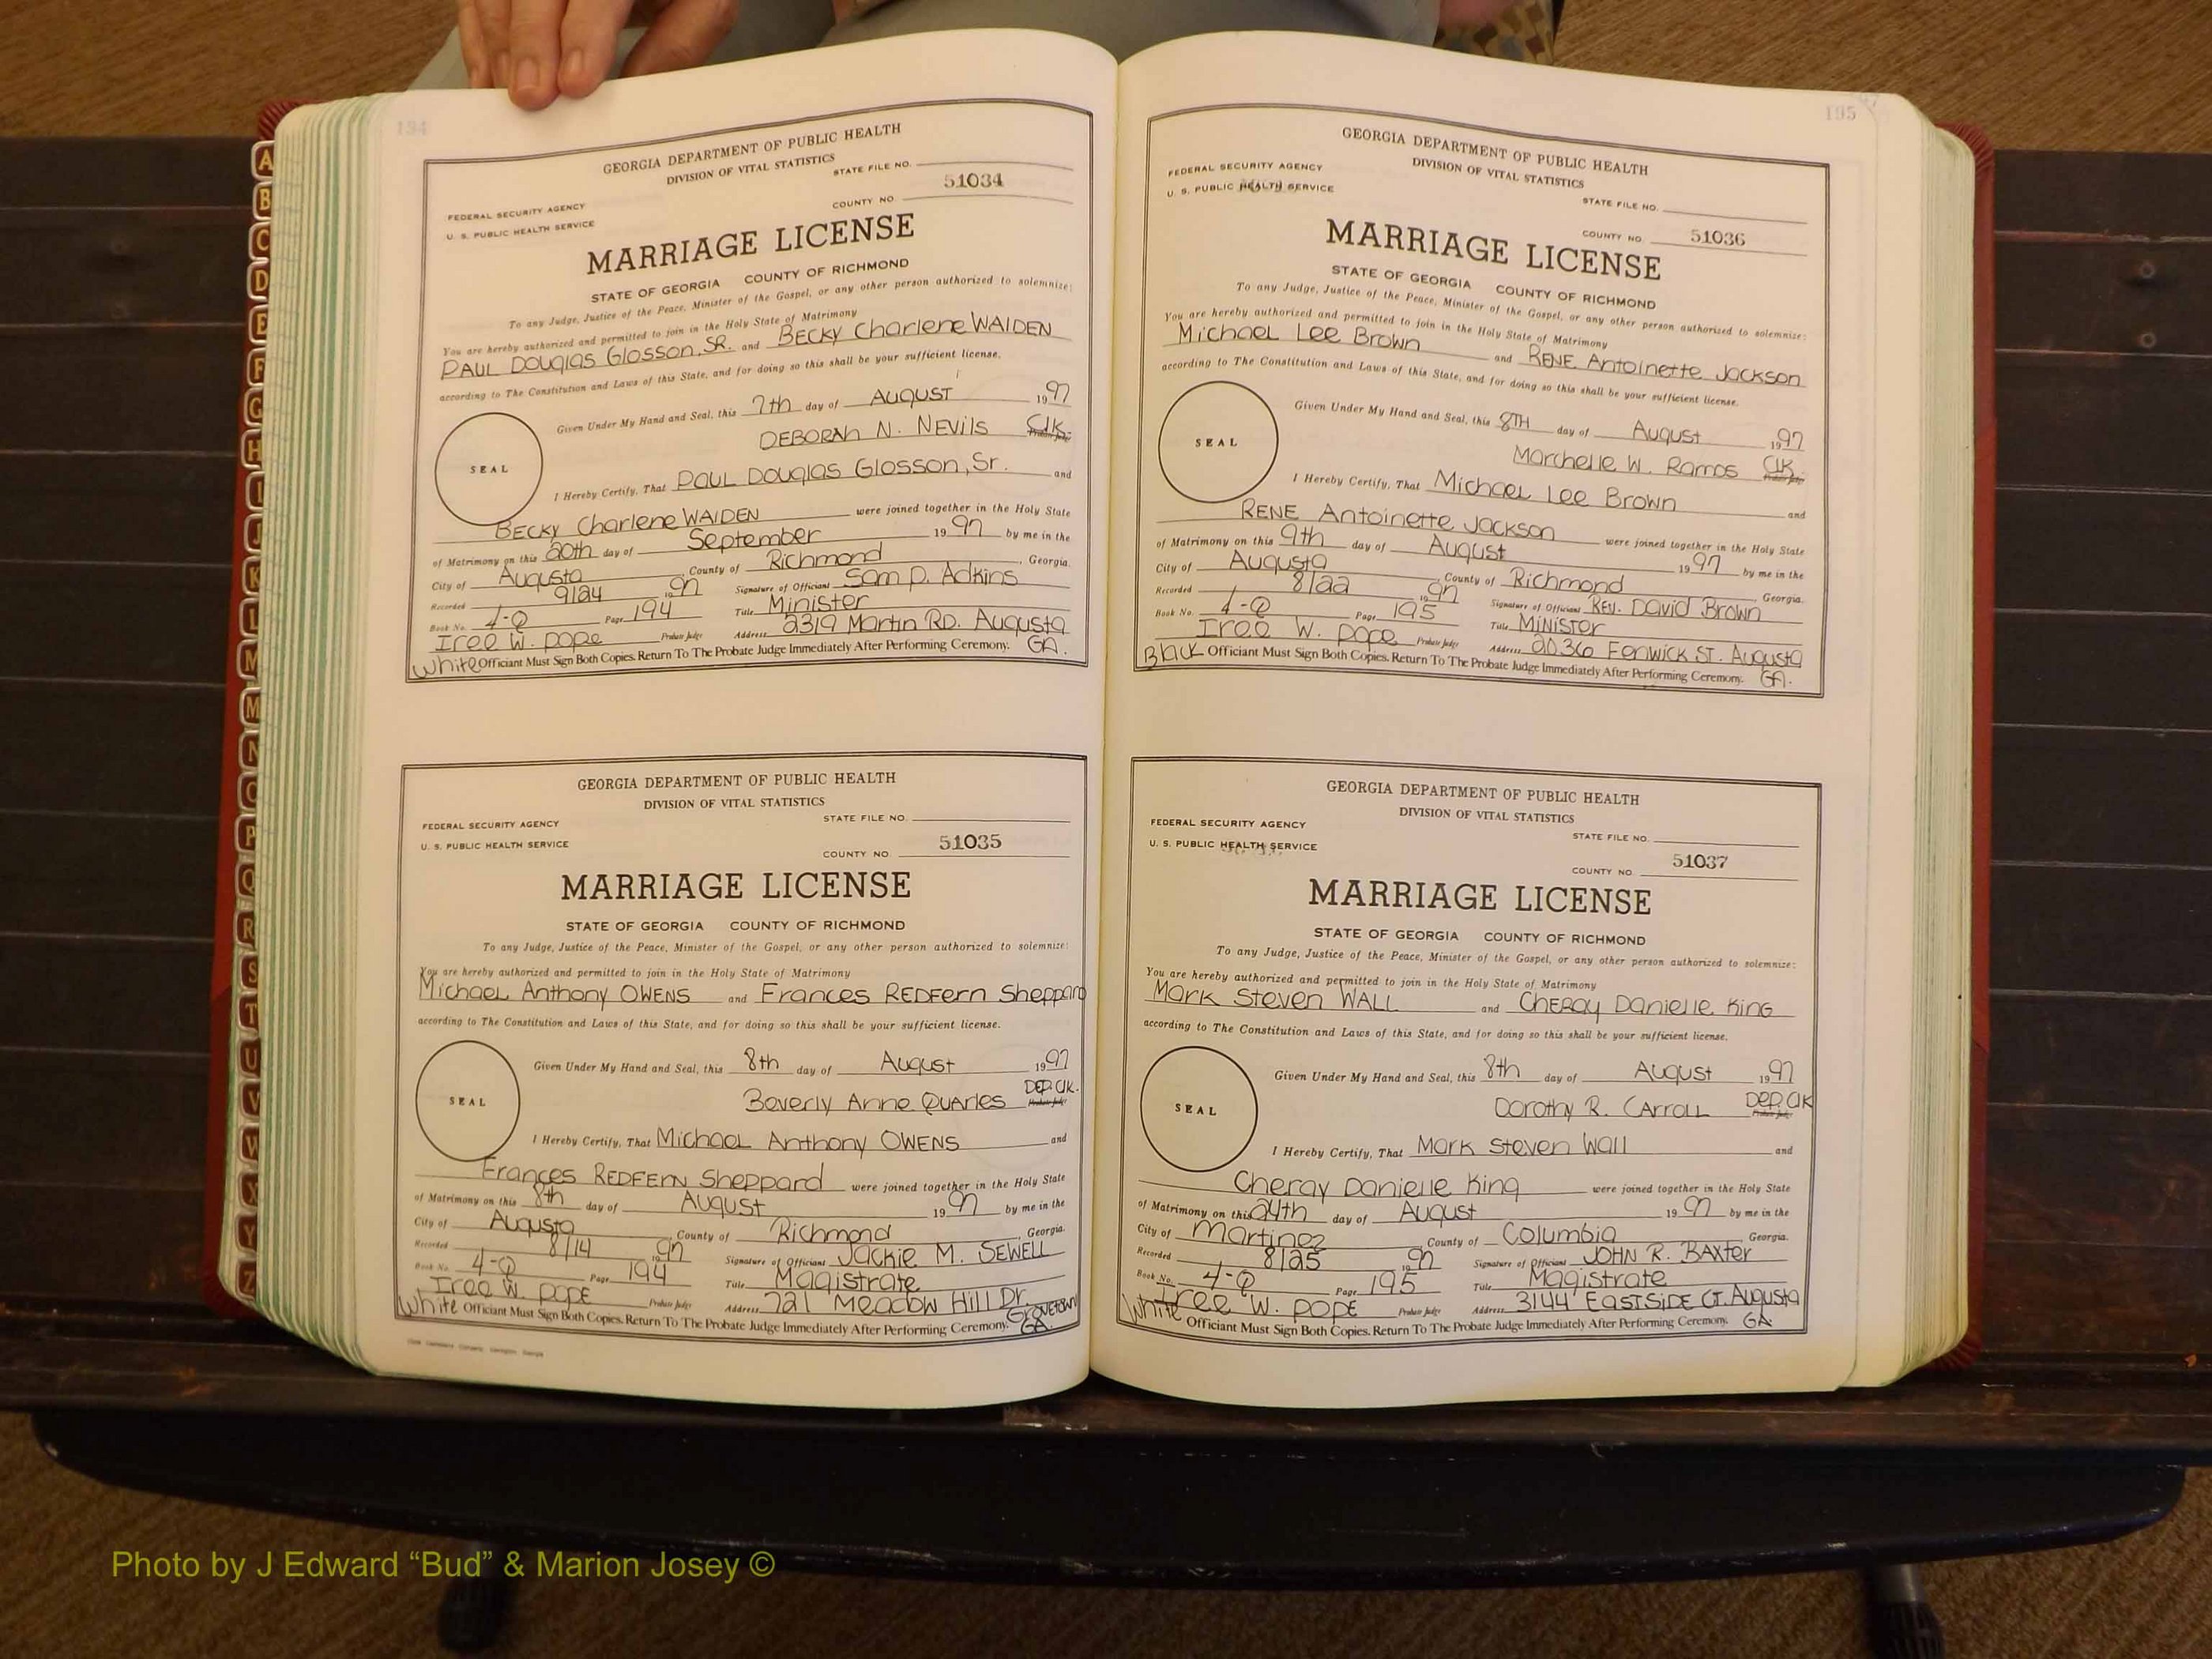 194
GEORGIA DEPARTMENT OF PUBLIC HEALTH
DIVISION OF VITAL STATISTICS
STATE FILE NO.
FEDERAL SECURITY AGENCY
U. S. PUBLIC HEALTH SERVICE
COUNTY NO. 51034
MARRIAGE LICENSE
STATE OF GEORGIA COUNTY OF RICHMOND
To any Judge, Justice of the Peace, Minister of the Gospel, or any other person authorized to solemnize:
You are hereby authorized and permitted to join in the Holy State of Matrimony
PAUL DOUGLAS Glosson, SR. and BECKY Charlene WALDEN
according to The Constitution and Laws of this State, and for doing so this shall be your sufficient license.
SEAL
Given Under My Hand and Seal, this 7th day of AUGUST 1997
DEBORAH N. NEVILS Clk. Probate Judge
I Hereby Certify, That PAUL DOUGLAS Glosson, Sr. and
BECKY Charlene WALDEN were joined together in the Holy State
of Matrimony on this 20th day of September 1997 by me in the
City of Augusta County of Richmond, Georgia.
Recorded 9/24 1997 Signature of Officiant Sam P. Adkins
Book No. 4-Q Page 194 Title Minister
Iree W. Pope Probate Judge Address 2319 Martin RD. Augusta
White Officiant Must Sign Both Copies. Return To The Probate Judge Immediately After Performing Ceremony. GA.
GEORGIA DEPARTMENT OF PUBLIC HEALTH
DIVISION OF VITAL STATISTICS
STATE FILE NO.
FEDERAL SECURITY AGENCY
U. S. PUBLIC HEALTH SERVICE
COUNTY NO. 51035
MARRIAGE LICENSE
STATE OF GEORGIA COUNTY OF RICHMOND
To any Judge, Justice of the Peace, Minister of the Gospel, or any other person authorized to solemnize:
You are hereby authorized and permitted to join in the Holy State of Matrimony
Michael Anthony OWENS and Frances REDFern Sheppard
according to The Constitution and Laws of this State, and for doing so this shall be your sufficient license.
SEAL
Given Under My Hand and Seal, this 8th day of August 1997
Beverly Anne Quarles DEP. Clk. Probate Judge
I Hereby Certify, That Michael Anthony OWENS and
Frances REDFERN Sheppard were joined together in the Holy State
of Matrimony on this 8th day of August 1997 by me in the
City of Augusta County of Richmond, Georgia.
Recorded 8/14 1997 Signature of Officiant Jackie M. SEWELL
Book No. 4-Q Page 194 Title Magistrate
Iree W. Pope Probate Judge Address 721 Meadow Hill Dr. Grovetown
White Officiant Must Sign Both Copies. Return To The Probate Judge Immediately After Performing Ceremony. GA.
195
GEORGIA DEPARTMENT OF PUBLIC HEALTH
DIVISION OF VITAL STATISTICS
FEDERAL SECURITY AGENCY
U. S. PUBLIC HEALTH SERVICE
STATE FILE NO.
COUNTY NO. 51036
MARRIAGE LICENSE
STATE OF GEORGIA COUNTY OF RICHMOND
To any Judge, Justice of the Peace, Minister of the Gospel, or any other person authorized to solemnize:
You are hereby authorized and permitted to join in the Holy State of Matrimony
Michael Lee Brown and RENE Antoinette Jackson
according to The Constitution and Laws of this State, and for doing so this shall be your sufficient license.
SEAL
Given Under My Hand and Seal, this 8TH day of August 1997
Marchelle W. Ramos Clk. Probate Judge
I Hereby Certify, That Michael Lee Brown and
RENE Antoinette Jackson were joined together in the Holy State
of Matrimony on this 9th day of August 1997 by me in the
City of Augusta, County of Richmond Georgia.
Recorded 8/22 1997 Signature of Officiant REV. David Brown
Book No. 4-Q Page 195 Title Minister
Iree W. Pope Probate Judge Address 2036 Fenwick ST. Augusta
Black Officiant Must Sign Both Copies. Return To The Probate Judge Immediately After Performing Ceremony. GA.
GEORGIA DEPARTMENT OF PUBLIC HEALTH
DIVISION OF VITAL STATISTICS
FEDERAL SECURITY AGENCY
U. S. PUBLIC HEALTH SERVICE
STATE FILE NO.
COUNTY NO. 51037
MARRIAGE LICENSE
STATE OF GEORGIA COUNTY OF RICHMOND
To any Judge, Justice of the Peace, Minister of the Gospel, or any other person authorized to solemnize:
You are hereby authorized and permitted to join in the Holy State of Matrimony
Mark Steven WALL and CHERAY Danielle King
according to The Constitution and Laws of this State, and for doing so this shall be your sufficient license.
SEAL
Given Under My Hand and Seal, this 8th day of August 1997
Dorothy R. CARROLL Dep. Clk Probate Judge
I Hereby Certify, That Mark Steven Wall and
Cheray Danielle King were joined together in the Holy State
of Matrimony on this 24th day of August 1997 by me in the
City of Martinez County of Columbia Georgia.
Recorded 8/25 1997 Signature of Officiant JOHN R. BAXter
Book No. 4-Q Page 195 Title Magistrate
Iree W. Pope Probate Judge Address 3144 EASTSIDE CT. Augusta
White Officiant Must Sign Both Copies. Return To The Probate Judge Immediately After Performing Ceremony. GA.
A
B
C
D
E
F
G
H
I
J
K
L
M
M
N
O
P
Q
R
S
T
U
V
W
X
Y
Z
Photo by J Edward “Bud” & Marion Josey ©